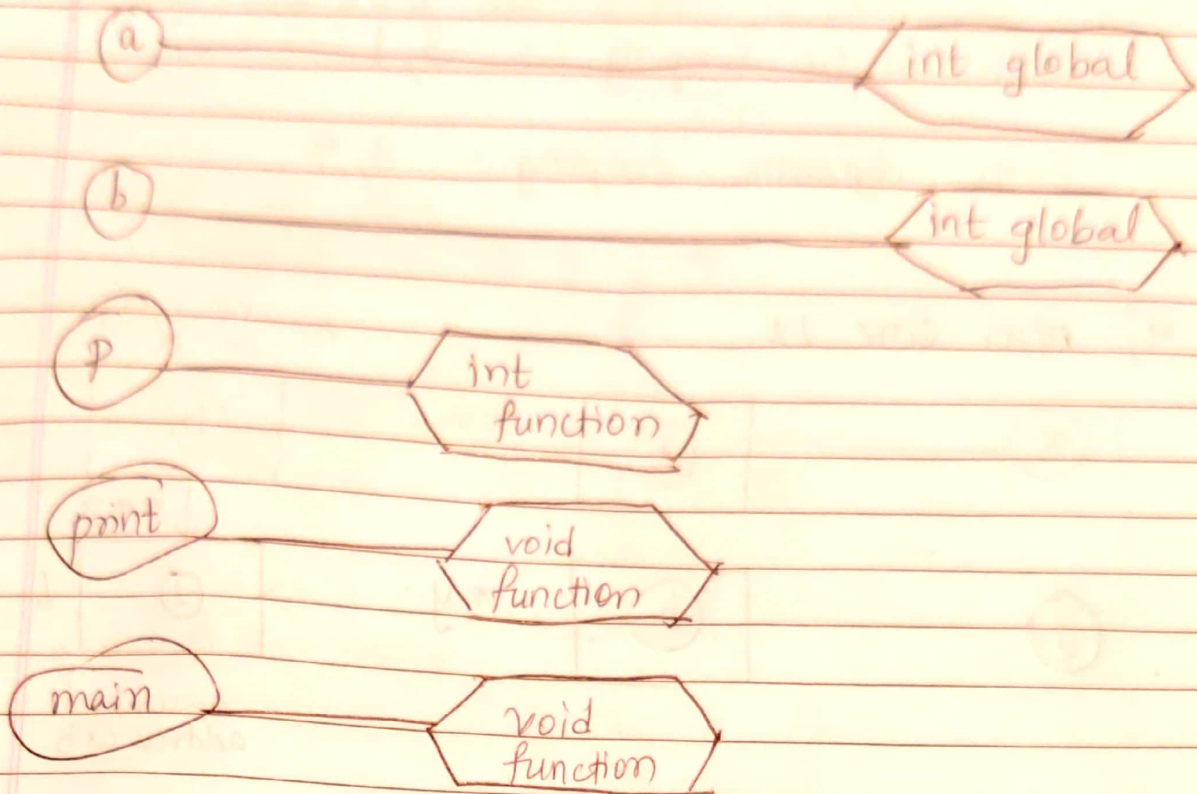 a
int global
b
int global
p
int
function
print
void
function
main
void
function